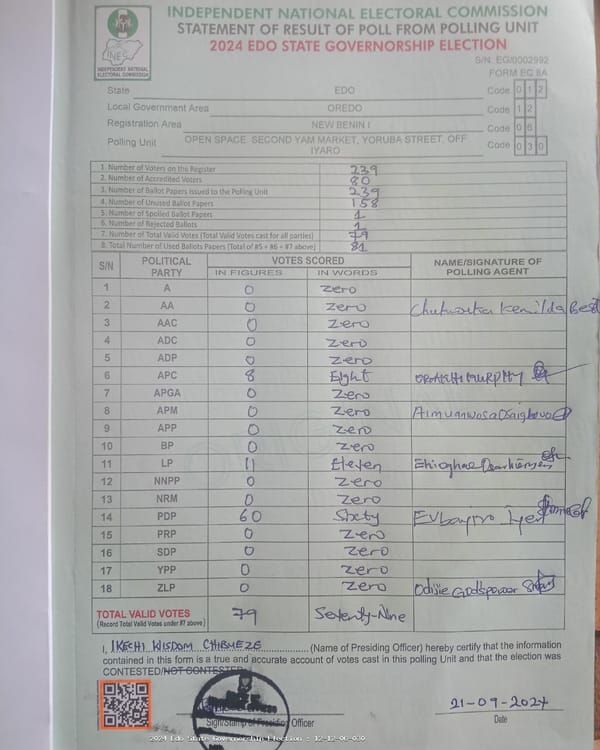 INDEPENDENT NATIONAL ELECTORAL COMMISSION
STATEMENT OF RESULT OF POLL FROM POLLING UNIT
2024 EDO STATE GOVERNORSHIP ELECTION
INEC
INDEPENDENT NATIONAL
ELECTORAL COMMISSION
S/N: EG/0002992
FORM EC 8A
State EDO Code 0 1 2
Local Government Area OREDO Code 1 2
Registration Area NEW BENIN I Code 0 6
Polling Unit OPEN SPACE, SECOND YAM MARKET, YORUBA STREET, OFF IYARO Code 0 3 0
1. Number of Voters on the Register 239
2. Number of Accredited Voters 80
3. Number of Ballot Papers Issued to the Polling Unit 239
4. Number of Unused Ballot Papers 158
5. Number of Spoiled Ballot Papers 1
6. Number of Rejected Ballots 1
7. Number of Total Valid Votes (Total Valid Votes cast for all parties) 79
8. Total Number of Used Ballots Papers (Total of #5 + #6 + #7 above) 81
S/N POLITICAL PARTY VOTES SCORED NAME/SIGNATURE OF POLLING AGENT
IN FIGURES IN WORDS
1 A 0 Zero
2 AA 0 Zero
3 AAC 0 Zero
4 ADC 0 Zero
5 ADP 0 Zero
6 APC 8 Eight
7 APGA 0 Zero
8 APM 0 Zero
9 APP 0 Zero
10 BP 0 Zero
11 LP 11 Eleven
12 NNPP 0 Zero
13 NRM 0 Zero
14 PDP 60 Sixty
15 PRP 0 Zero
16 SDP 0 Zero
17 YPP 0 Zero
18 ZLP 0 Zero Odijie Godspower
TOTAL VALID VOTES 79 Seventy-Nine
(Record Total Valid Votes under #7 above)
I, IKECHI WISDOM CHIBUEZE (Name of Presiding Officer) hereby certify that the information
contained in this form is a true and accurate account of votes cast in this polling Unit and that the election was
CONTESTED/NOT CONTESTED.
21-09-2024
Sign/Stamp of Presiding Officer Date
2024 Edo State Governorship Election : 12-12-06-030